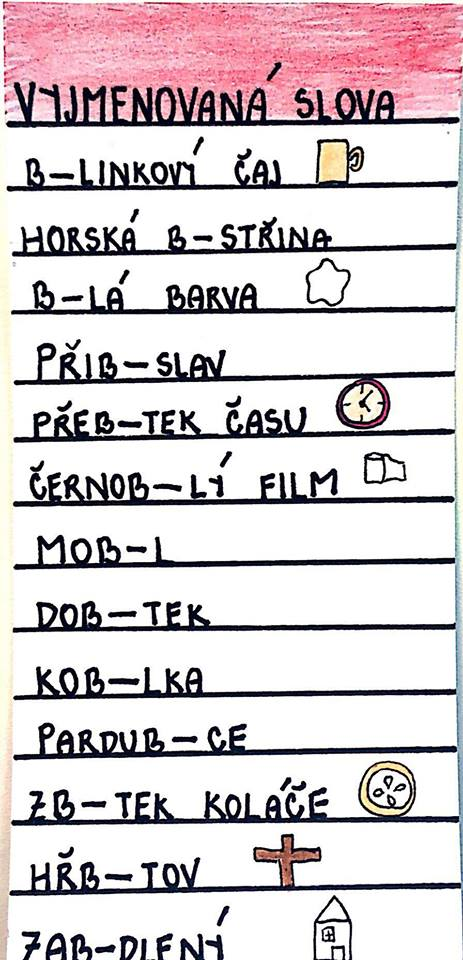 VYJMENOVANÁ SLOVA
B–LINKOVÝ ČAJ
HORSKÁ B–STŘINA
B–LÁ BARVA
PŘIB–SLAV
PŘEB–TEK ČASU
ČERNOB–LÝ FILM
MOB–L
DOB–TEK
KOB–LKA
PARDUB–CE
ZB–TEK KOLÁČE
HŘB–TOV
ZAB–DLENÝ